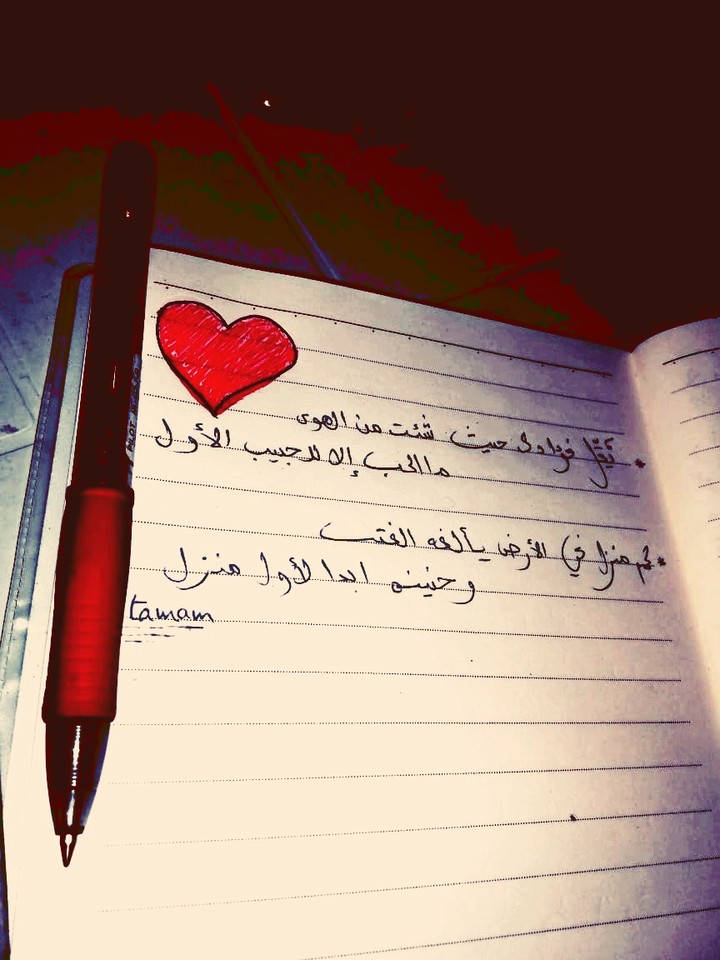 * نقل فؤادك حيث شئت من الهوى
ما الحب إلا للحبيب الأول
* كم منزل في الأرض يألفه الفتى
وحنينه ابدا لأول منزل
tamam
PILOT